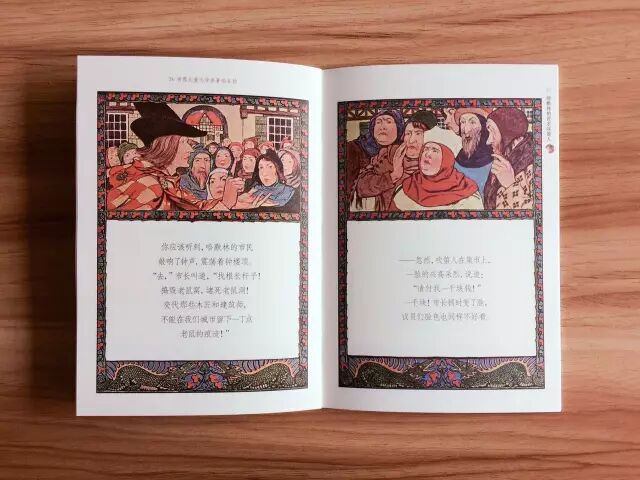 你应该听到，哈默林的市民
敲响了钟声，震荡着钟楼顶。
“去，”市长叫道，“找根长杆子！
捣毁老鼠窝，堵死老鼠洞！
要找那些木匠和建筑师，
不能在我们城市留下一丁点
老鼠的痕迹！”
哈默林的花衣吹笛人
——忽然，吹笛人在集市上，
一脸的兴高采烈，说道：
“请付我一千块钱！”
一千块！市长顿时变了脸，
议员们脸色也同样不好看。